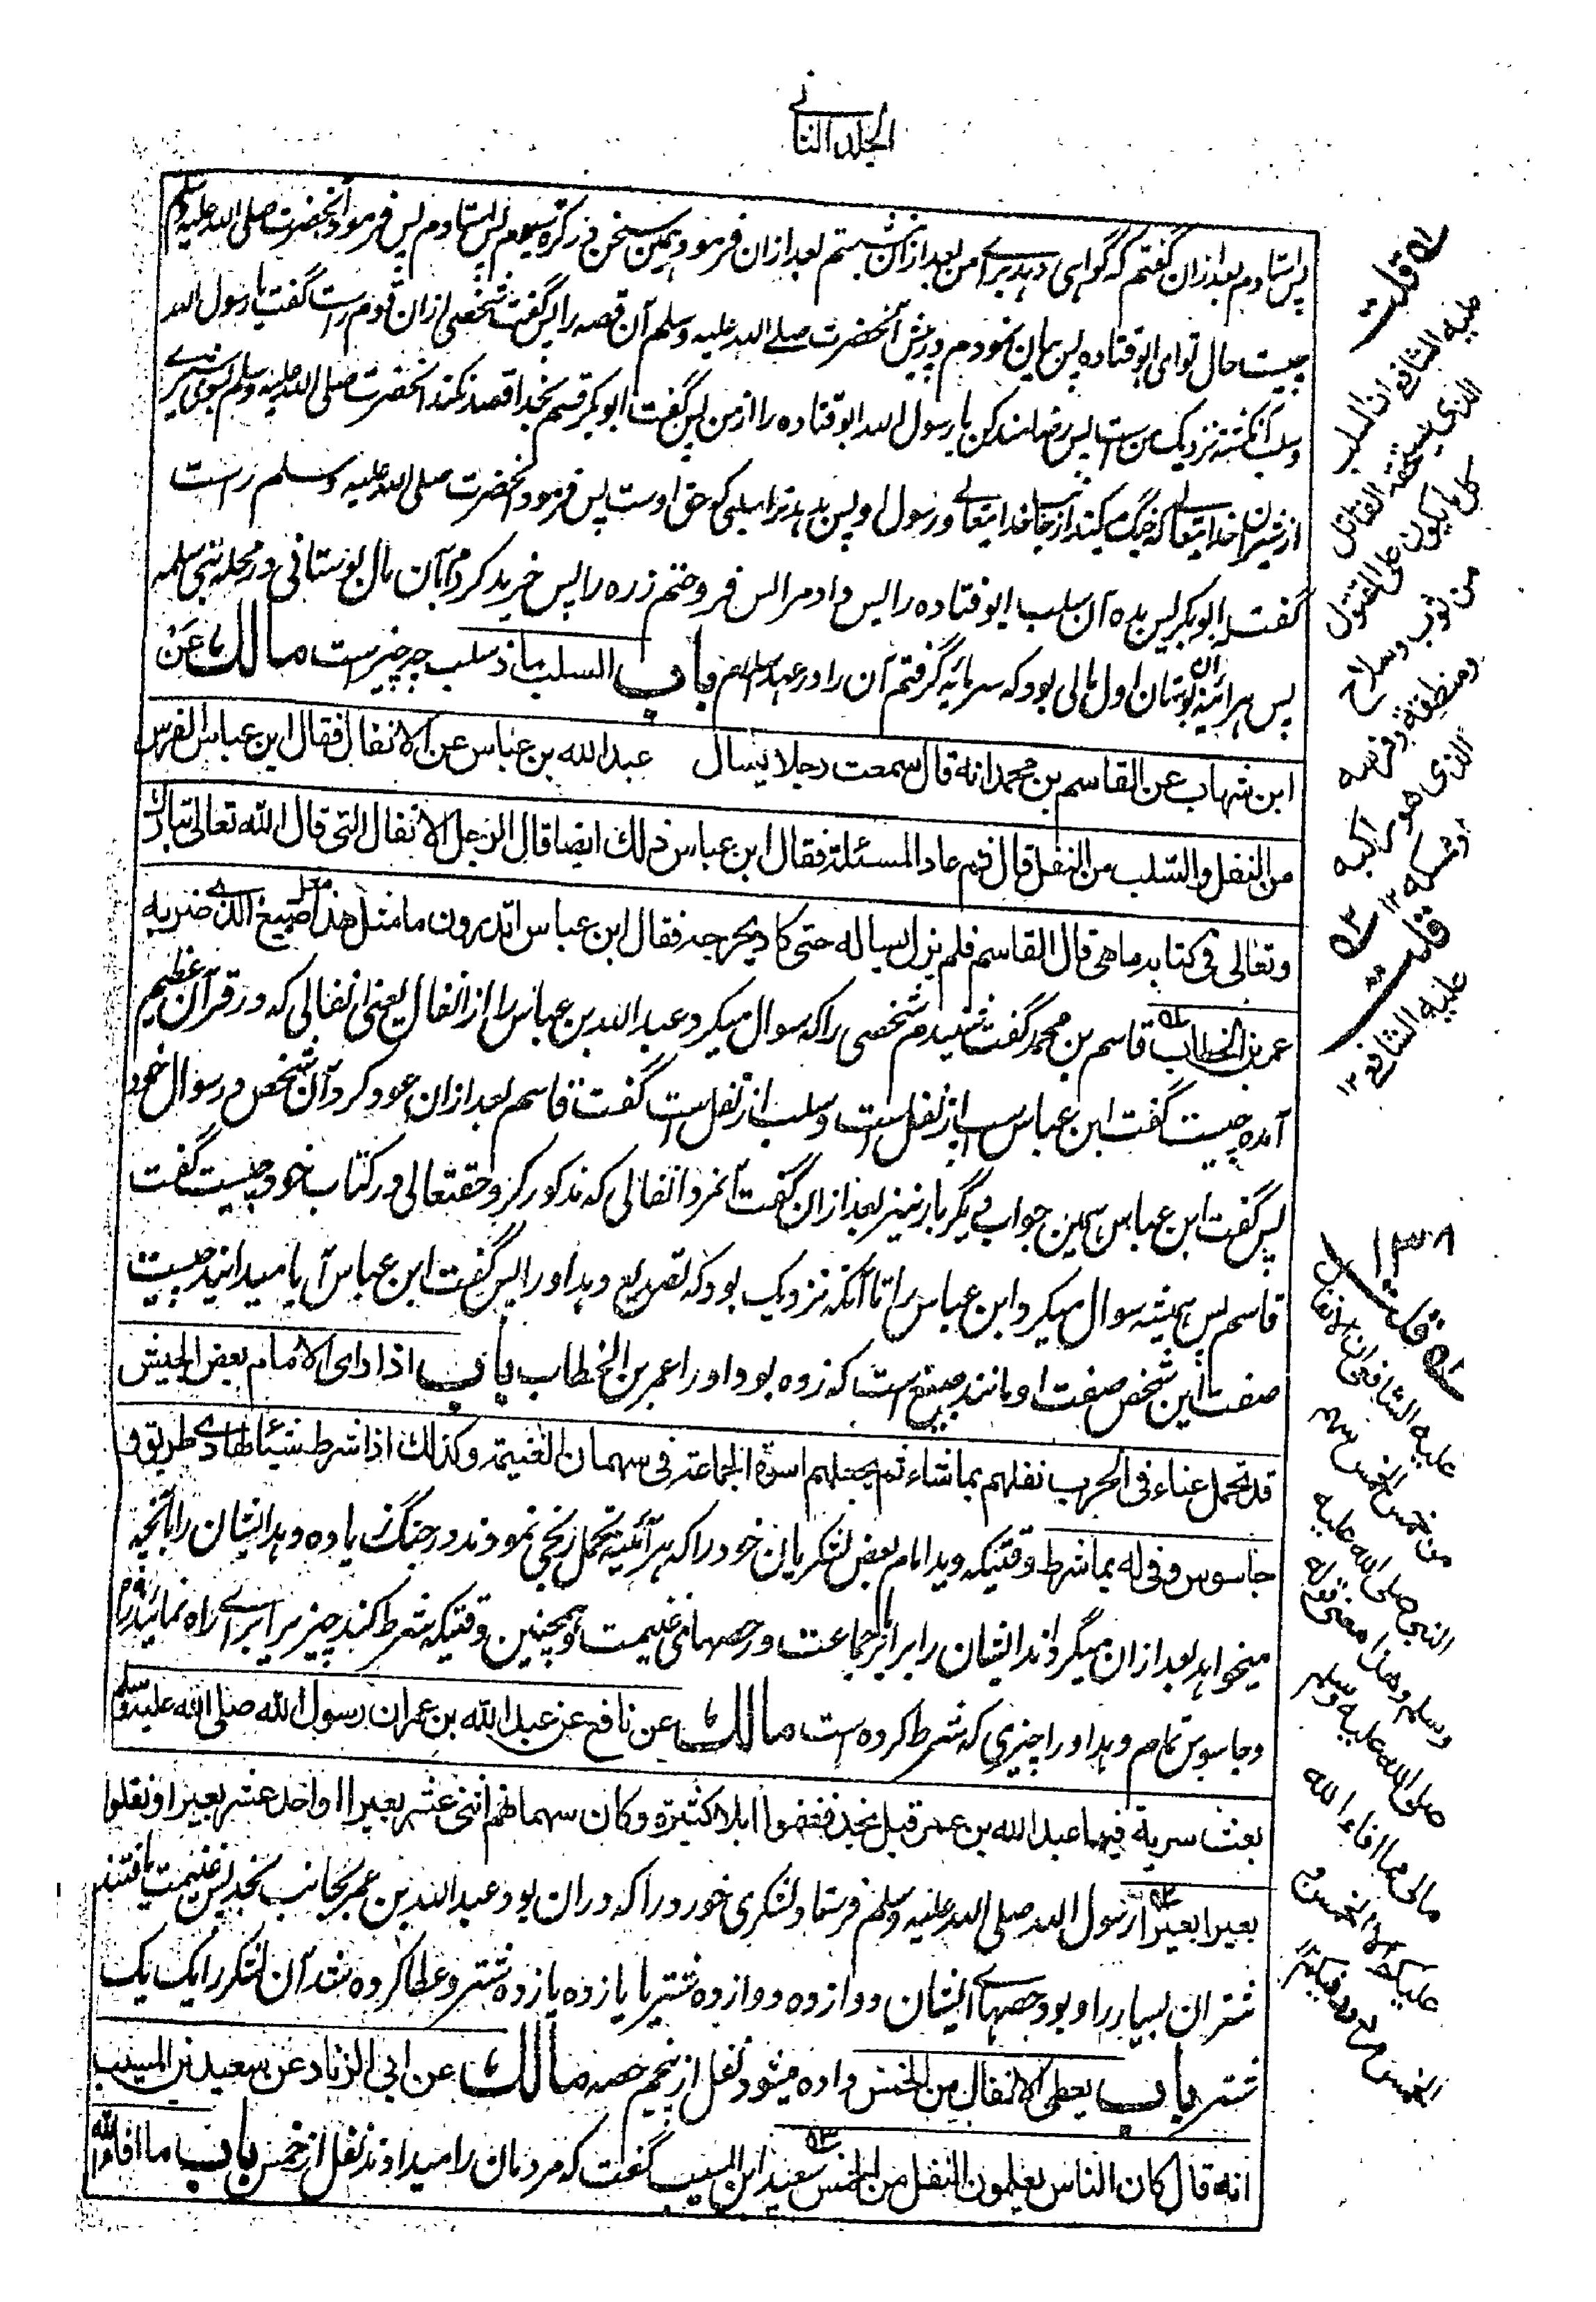 الجلد الثانی
پس استادم بعد ازان گفتم که گواهی دهد برای من بعد ازان نشستم بعد ازان فرمود همین سخن در کرّة سیوم پس استادم پس فرمود آنحضرت صلی الله علیه وسلم
چیست حال تو ای ابوقتاده پس بیان نمودم در پیش آنحضرت صلے الله علیه وسلم آن قصه را پس گفت شخصی ازان قوم راست گفت یا رسول الله
وسلب آن کشته نزدیک من است پس رضامند کن یا رسول الله ابوقتاده را از من پس گفت ابوبکر قسم بخدا قصد نکند آنحضرت صلی الله علیه وسلم بسوی شیرے
از شیران خدایتعالے که جنگ میکند از جانب خدایتعالے ورسول او پس بدهد ترا سلبی که حق اوست پس فرمود آنحضرت صلی الله علیه وسلم راست
گفت ابوبکر پس بده آن سلب ابوقتاده را پس داد مرا پس فروختم زره را پس خرید کردم بآن مال بوستانی در محله بنی سلمه
پس هرائینه آن بوستان اول مالی بود که سرمایه گرفتم آن را در عهد اسلام باب السلب ماذ سلب چه چیز است مالك عن
ابن شهاب عن القاسم بن محمد انه قال سمعت رجلا یسال عبد الله بن عباس عن الانفال فقال ابن عباس الفرس
من النفل والسلب من النفل قال ثم عاد المسئلة فقال ابن عباس ذلك ایضا قال الرجل الانفال التی قال الله تعالی تبارك
وتعالی فی کتابه ما هی قال القاسم فلم یزل یساله حتی کاد یحرجه فقال ابن عباس اتدرون ما مثل هذا مثل صبیغ الذی ضربه
عمر بن الخطاب قاسم بن محمد گفت شنیدم شخصی را که سوال میکرد عبد الله بن عباس را از انفال یعنی انفالی که در قرآن عظیم
آمده چیست گفت ابن عباس اسپ از نفل است وسلب از نفل است گفت قاسم بعد ازان عود کرد آن شخص در سوال خود
پس گفت ابن عباس همین جواب دیگر بار نیز بعد ازان گفت آنمرد انفالی که مذکور کرد حقتعالی در کتاب خود چیست گفت
قاسم پس همیشه سوال میکرد ابن عباس را تا آنکه نزدیک بود که تصدیع دهد او را پس گفت ابن عباس آیا میدانید چیست
صفت این شخص صفت او مانند صبیغ است که زده بود او را عمر بن الخطاب باب اذا رای الامام بعض الجیش
قد تحمل عناء فی الحرب نفلهم بما شاء ثم یجعلهم اسوة الجماعة فی سهمان الغنیمة وکذلك اذا شرط شیئا لهادی طریق و
جاسوس وفی له بما شرط وقتیکه دید امام بعض لشکریان خود را که هر آئینه تحمل رنجی نمودند در جنگ زیاده دهد ایشان را بآنچه
میخواهد بعد ازان میگرداند ایشان را برابر جماعت در حصهای غنیمت وهمچنین وقتیکه شرط کند چیزی برای راه نماینده راه
وجاسوس تمام دهد او را چیزی که شرط کرده است مالك عن نافع عن عبد الله بن عمر ان رسول الله صلی الله علیه وسلم
بعث سریة فیها عبد الله بن عمر قبل نجد فغنموا ابلا کثیرة وکان سهمانهم اثنی عشر بعیرا او احد عشر بعیرا ونفلوا
بعیرا بعیرا رسول الله صلی الله علیه وسلم فرستاد لشکری خورد را که دران بود عبد الله بن عمر بجانب نجد پس غنیمت یافتند
شتران بسیار را وبود حصهاے ایشان دوازده دوازده شتر یا یازده یازده شتر وعطا کرده شد آن لشکر را یک یک
شتر باب یعطی الانفال من الخمس داده میشود نفل از پنجم حصه مالك عن ابی الزناد عن سعید بن المسیب
انه قال کان الناس یعطون النفل من الخمس سعید ابن المسیب گفت که مردمان را میدادند نفل از خمس باب ما افاء الله
قلت
علیه الشافعی ان السلب
الذی یستحقه القاتل
کل ما یکون علی المقتول
من ثوب وسلاح
ومنطقة وفرسه
الذی هو راکبه
او ممسکه ۱۲
قلت
علیه الشافعی ۱۲
۱۳۰۸
قلت
علیه الشافعی ان الانفال
من خمس الخمس سهم
النبی صلی الله علیه
وسلم وهذا معنی قوله
صلی الله علیه وسلم
مالی مما افاء الله
علیکم الا الخمس و
الخمس مردود فیکم